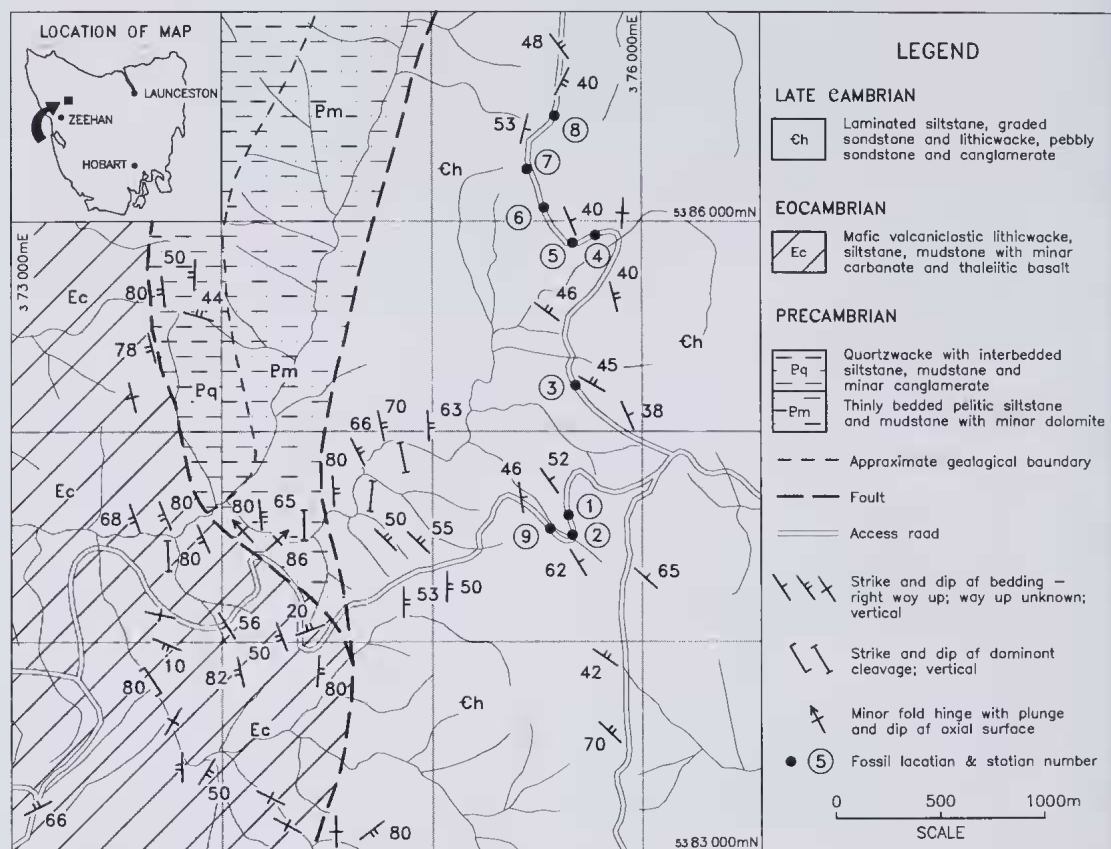 LOCATION OF MAP
LAUNCESTON
ZEEHAN
HOBART
3 73 000mE
3 76 000mE
53 86 000mN
53 83 000mN
48
40
8
53
7
Pm
Єh
6
40
5
4
Єh
50
Ec
80
44
46
40
78
Pq
Pm
3
45
38
70
63
66
80
Ec
46
52
1
68
80
80
65
50
55
9
2
80
86
62
65
53
50
56
20
10
50
82
80
80
42
Єh
Ec
70
50
66
80
LEGEND
LATE CAMBRIAN
Єh
Laminated siltstane, graded
sondstone and lithicwacke, pebbly
sondstone and canglomerate
EOCAMBRIAN
Ec
Mafic valcaniclostic lithicwacke,
siltstane, mudstone with minor
carbanate and thaleiitic basalt
PRECAMBRIAN
Pq
Quortzwacke with interbedded
siltstane, mudstane and
minor canglomerate
Pm
Thinly bedded pelitic siltstane
and mudstane with minor dolomite
Approximate gealagical baundary
Foult
Access raad
Strike and dip af bedding –
right woy up; woy up unknown;
verticol
Strike and dip af dominont
cleavage; vertical
Minor fold hinge with plunge
and dip af oxial surface
5 Fossil lacatian & stotian number
0 500 1000m
SCALE